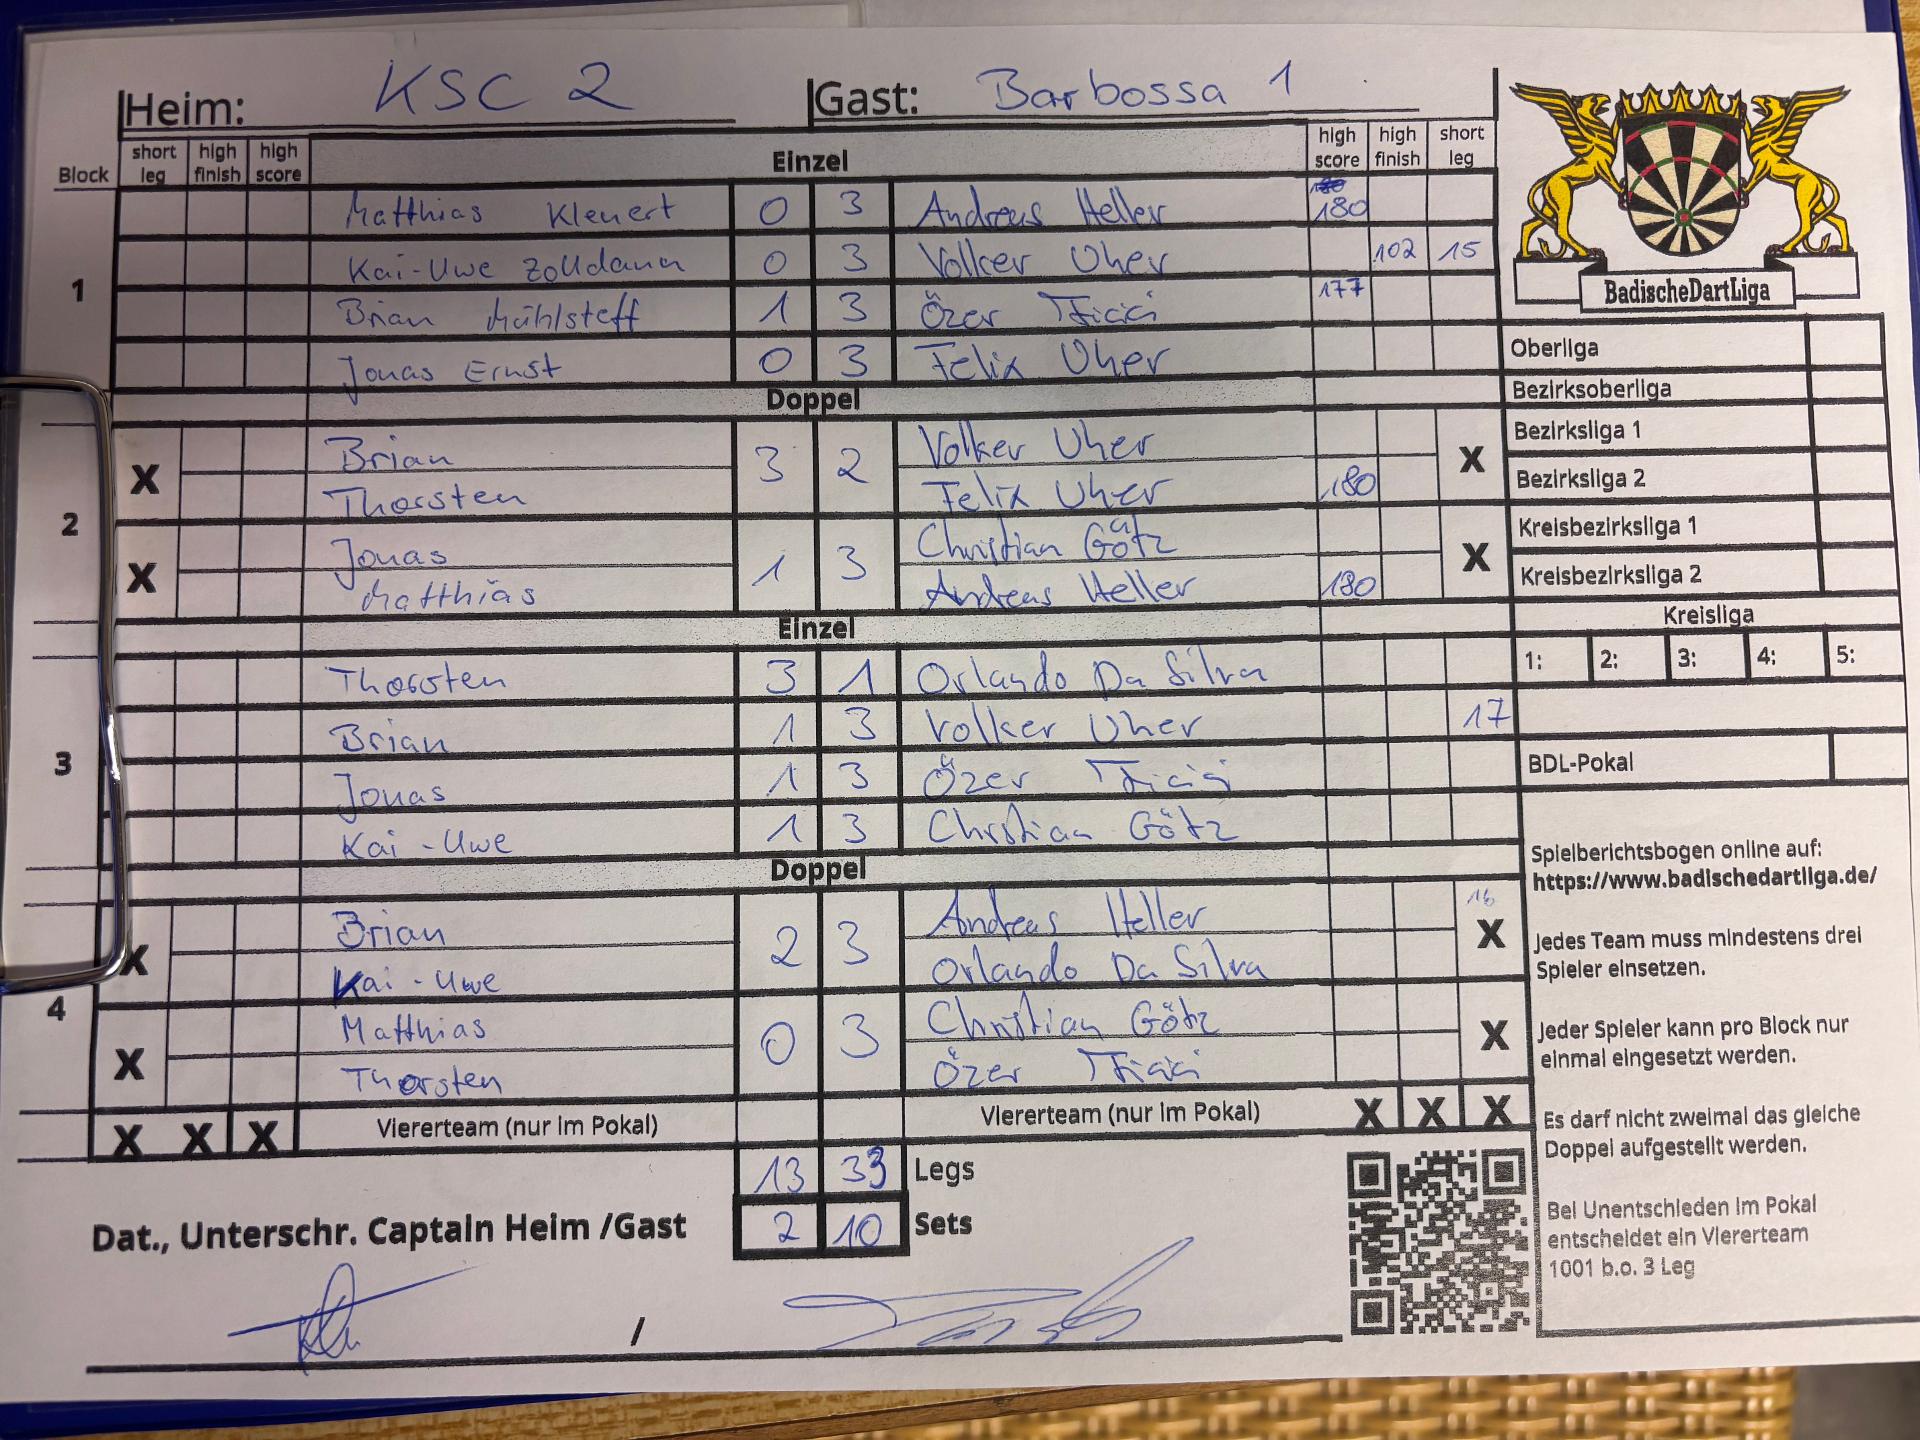 Heim: KSC 2 Gast: Barbossa 1
Block short leg high finish high score Einzel high score high finish short leg
1
Matthias Klenert 0 3 Andreas Heller 180
Kai-Uwe Zolldann 0 3 Volker Uher 102 15
Brian Mühlsteff 1 3 Özer 177
Jonas Ernst 0 3 Felix Uher
Doppel
2
X Brian 3 2 Volker Uher X
Thorsten Felix Uher 180
X Jonas 1 3 Christian Götz X
Matthias Andreas Heller 180
Einzel
3
Thorsten 3 1 Orlando Da Silva
Brian 1 3 Volker Uher 17
Jonas 1 3 Özer
Kai-Uwe 1 3 Christian Götz
Doppel
4
X Brian 2 3 Andreas Heller 16 X
Kai-Uwe Orlando Da Silva
X Matthias 0 3 Christian Götz X
Thorsten Özer
X X X Viererteam (nur im Pokal) Viererteam (nur im Pokal) X X X
13 33 Legs
Dat., Unterschr. Captain Heim /Gast 2 10 Sets
/
BadischeDartLiga
Oberliga
Bezirksoberliga
Bezirksliga 1
Bezirksliga 2
Kreisbezirksliga 1
Kreisbezirksliga 2
Kreisliga
1: 2: 3: 4: 5:
BDL-Pokal
Spielberichtsbogen online auf:
https://www.badischedartliga.de/
Jedes Team muss mindestens drei
Spieler einsetzen.
Jeder Spieler kann pro Block nur
einmal eingesetzt werden.
Es darf nicht zweimal das gleiche
Doppel aufgestellt werden.
Bei Unentschieden im Pokal
entscheidet ein Viererteam
1001 b.o. 3 Leg